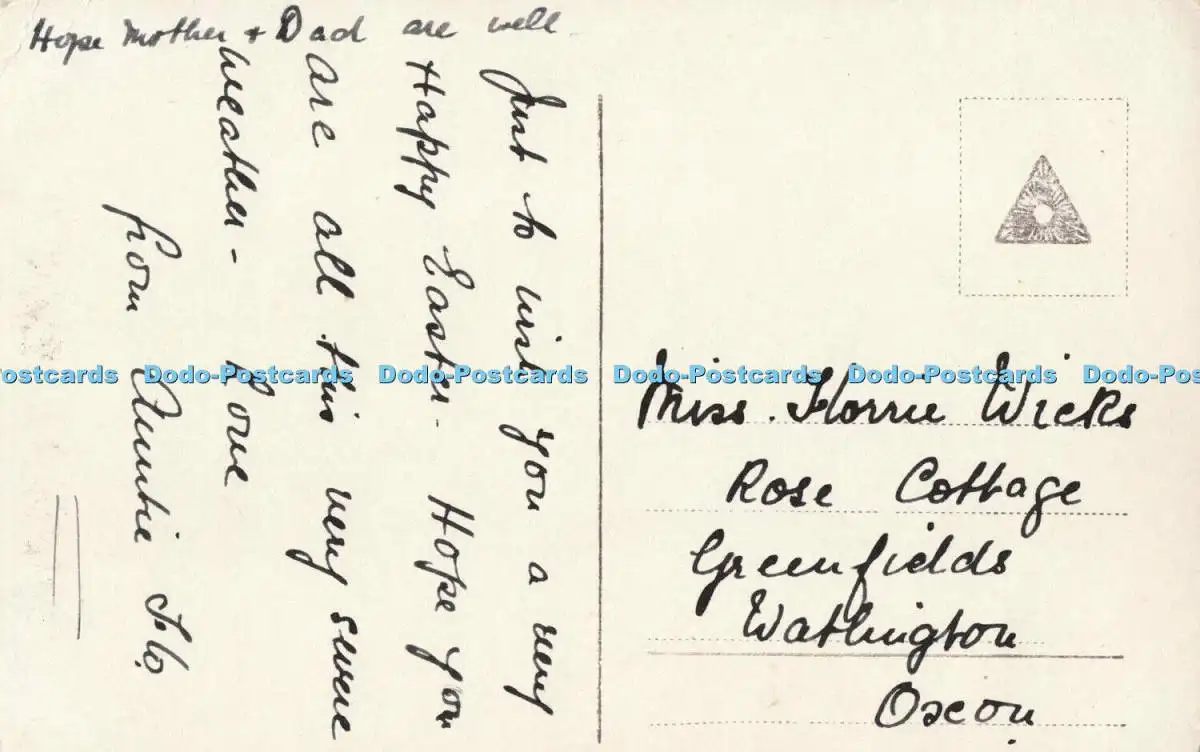 Hope Mother + Dad are well.
Just to wish you a very
Happy Easter. Hope you
are all this very severe
weather - Love
from Auntie Flo.
Miss. Florrie Wicks
Rose Cottage
Greenfields
Watlington
Oxon
Postcards Dodo-Postcards Dodo-Postcards Dodo-Postcards Dodo-Postcards Dodo-Postcards